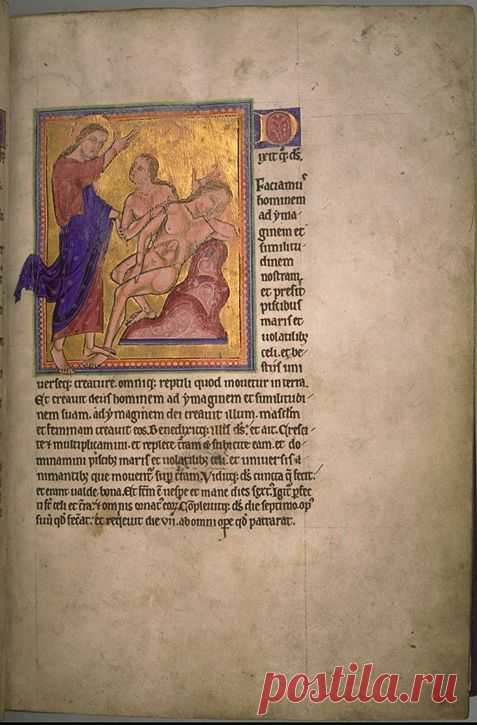 Dixit q; ds.
Faciamus
hominem
ad yma-
ginem et
similitu-
dinem
nostram.
et presit
piscibus
maris et
volatilib;
celi. et be-
stiis uni
verseq; creature. omniq; reptili quod movetur in terra.
Et creavit deus hominem ad ymaginem et similitudi-
nem suam. ad ymaginem dei creavit illum. masclm
et feminam creavit eos. Benedixitq; illis ds. et ait. Cresci-
te et multiplicamini. et replete terram et subicite eam. et do-
minamini piscib; maris et volatilib; celi. et universis a-
nimantib; que moventur sup terram. Viditq; ds cuncta q fecit.
et erant valde bona. Et fcm e vespe et mane dies sext. Igit pfec
ti st celi et tra. et omnis ornat eor. Conplevitq; ds die septimo op
suu qd fecat. et requievit die vii. ab omni ope qd patrarat.
postila.ru